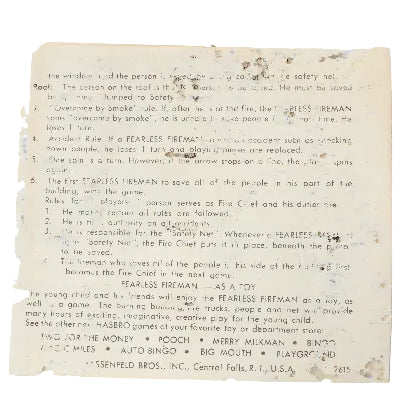 the window and the person is saved by being carried the safety net.
Roof: The person on the roof is the person to be saved. He must be saved
by being "Jumped to Safety
"Overcome by Smoke" rule. If, after he is at the fire, the FEARLESS FIREMAN
spins "overcome by smoke", he is unable to save people time. He
loses 1 turn.
4. Accident Rule. If a FEARLESS FIREMAN accident such as knocking
down people, he loses 1 turn and playing pieces are replaced.
5. One spin is a turn. However, if the arrow stops on a line, the player spins
again.
6. The first FEARLESS FIREMAN to save all of the people in his part of the
building, wins the game.
Rules for players: 1 person serves as Fire Chief and his duties are:
1. He makes certain all rules are followed.
2. He is the authority on all accidents.
3. He is responsible for the "Safety Net". Whenever a FEARLESS
"Safety Net", the Fire Chief puts it in place, beneath the person
to be saved.
4. The fireman who saves all of the people in his side of the building first
becomes the Fire Chief in the next game.
FEARLESS FIREMAN — AS A TOY
The young child and his friends will enjoy the FEARLESS FIREMAN as a toy, as
well as a game. The burning building, fire trucks, people and net will provide
many hours of exciting, imaginative, creative play for the young child.
See the other HASBRO games at your favorite toy or department store:
TWO FOR THE MONEY • POOCH • MERRY MILKMAN • BINGO
MAGIC MILES • AUTO BINGO • BIG MOUTH • PLAYGROUND
HASSENFELD BROS., INC., Central Falls, R. I., U.S.A. 2615